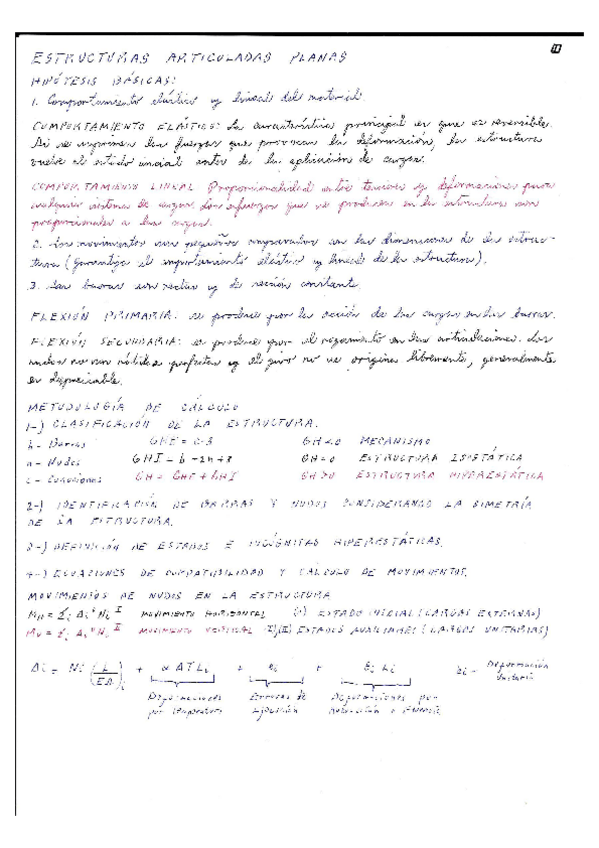 ESTRUCTURAS ARTICULADAS PLANAS
HIPÓTESIS BÁSICAS:
1. Comportamiento elástico y lineal del material.
COMPORTAMIENTO ELÁSTICO: La característica principal es que es reversible.
Si se suprimen las fuerzas que provocan la deformación, la estructura
vuelve al estado inicial antes de la aplicación de cargas.
COMPORTAMIENTO LINEAL Proporcionalidad entre tensiones y deformaciones para
cualquier sistema de cargas. Los esfuerzos que se producen en la estructura son
proporcionales a las cargas.
2. Los movimientos son pequeños comparados con las dimensiones de la estruc-
tura (Garantiza el comportamiento elástico y lineal de la estructura).
3. Las barras son rectas y de sección constante.
FLEXIÓN PRIMARIA: se produce por la acción de las cargas en las barras.
FLEXIÓN SECUNDARIA: se produce por el rozamiento en las articulaciones. Los
nudos no son rótulas perfectas y el giro no se origina libremente, generalmente
es despreciable.
METODOLOGÍA DE CÁLCULO
1-) CLASIFICACIÓN DE LA ESTRUCTURA.
b - Barras GHE = c-3 GH<0 MECANISMO
n - Nudos GHI = b -2n+3 GH=0 ESTRUCTURA ISOSTÁTICA
c - Coacciones GH = GHE + GHI GH>0 ESTRUCTURA HIPERESTÁTICA
2-) IDENTIFICACIÓN DE BARRAS Y NUDOS CONSIDERANDO LA SIMETRÍA
DE LA ESTRUCTURA.
3-) DEFINICIÓN DE ESTADOS E INCÓGNITAS HIPERESTÁTICAS.
4-) ECUACIONES DE COMPATIBILIDAD Y CÁLCULO DE MOVIMIENTOS.
MOVIMIENTOS DE NUDOS EN LA ESTRUCTURA
MOVIMIENTO HORIZONTAL ESTADO INICIAL (CARGAS EXTERNAS)
MOVIMIENTO VERTICAL ESTADOS AUXILIARES (CARGAS UNITARIAS)
Δi = Ni (L/EA)i + α ΔT Li + ei + εi Li εi - Deformación
unitaria
Deformaciones Errores de Deformaciones por
por temperatura Ejecución